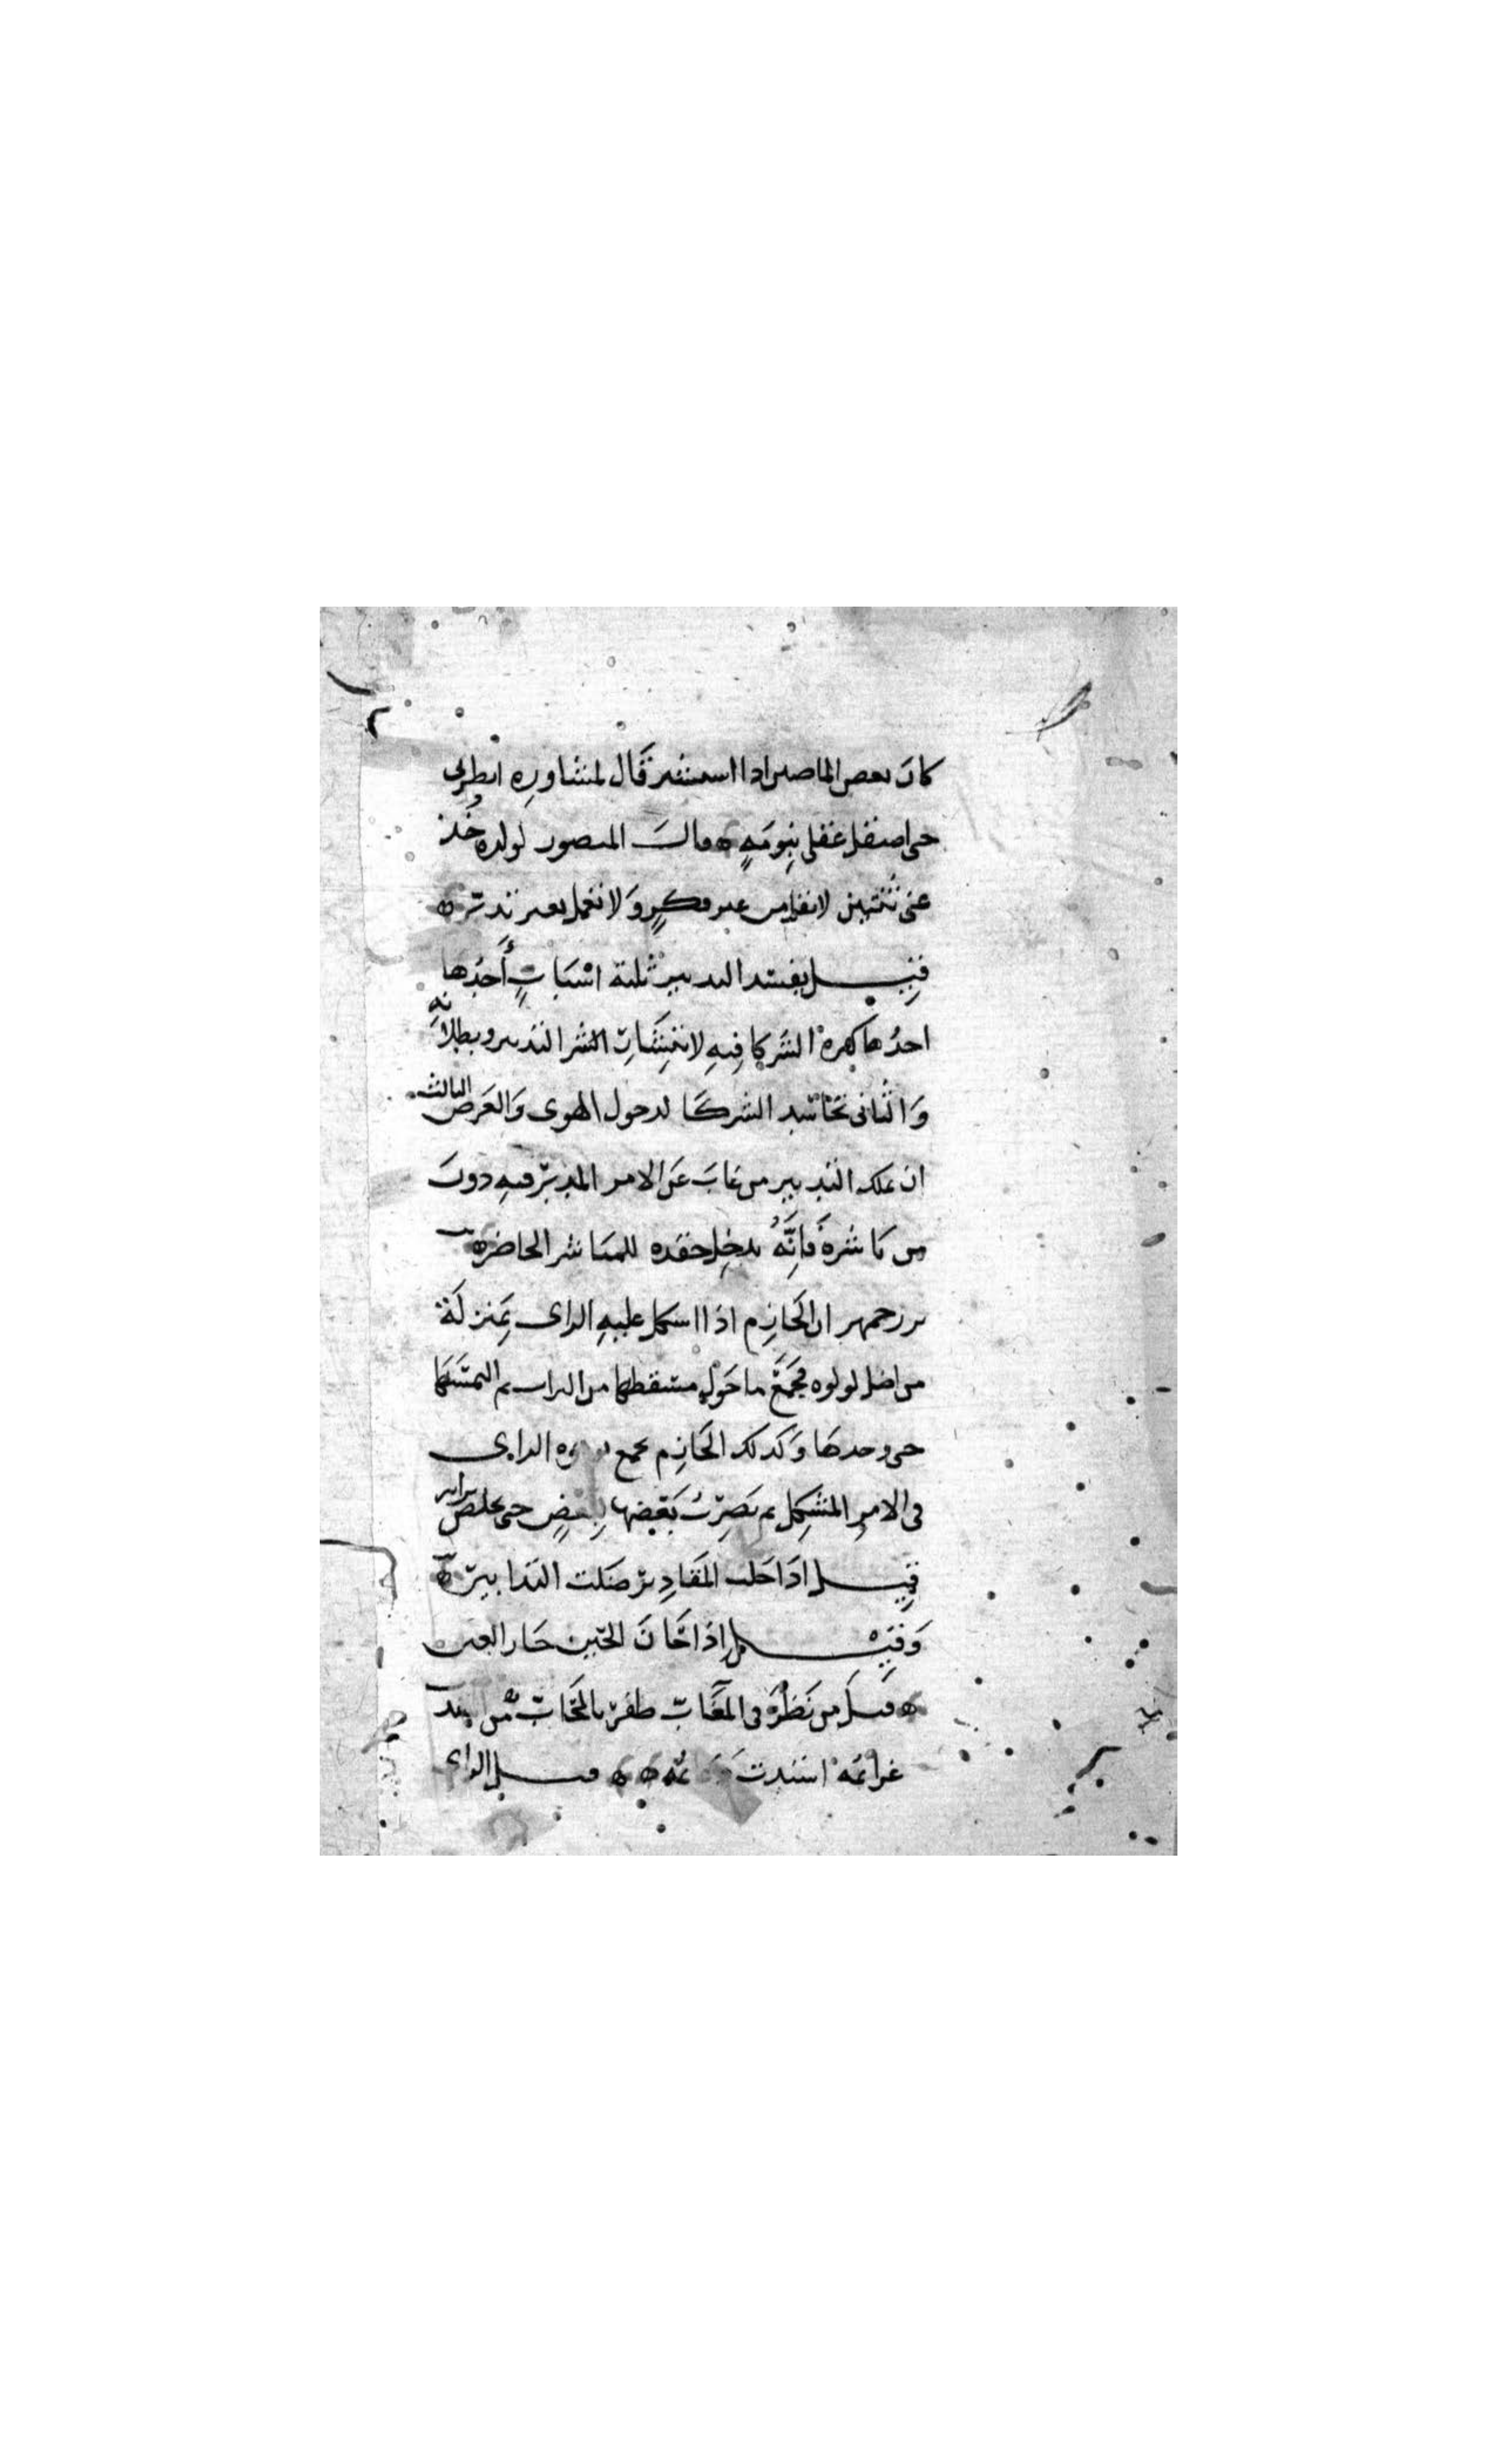 كان بعض الماضين اذا استشير قال لمشاوره انظرني
حتى اصقل عقلي بنومه وقال المنصور لولده خذ
عني ثنتين لا تقل من غير فكر ولا تعمل بغير تدبير
قيل يفسد التدبير ثلثة اسباب أحدها
احدها كثرة الشركا فيه لانتشار التدبير وبطلانه
والثاني تحاسد الشركا لدخول الهوى والغرض الثالث
ان يملك التدبير من غاب عن الامر المدبر فيه دون
من باشره فانه يدخل حقده للمباشر الحاضر
بزرجمهر ان الحازم اذا اشكل عليه الراي بمنزلة
من اضل لولوه فجمع ما حول مسقطها من التراب ثم التمسها
حتى وجدها وكذلك الحازم يجمع وجوه الراي
في الامر المشكل ثم يضرب بعضها ببعض حتى يخلص
قيل اذا حلت المقادير ضلت التدابير
وقيل اذا حان الحين حار العين
قيل من نظر في المغاب ظفر بالمحاب من
عزائمه اشتدت قيل الراي